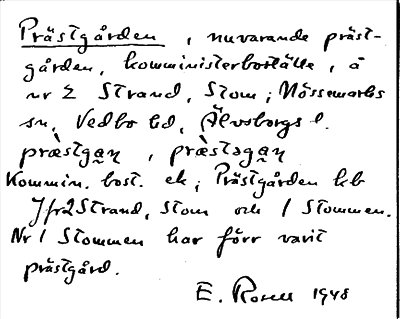 Prästgården, nuvarande präst-
gården, komministerboställe, å
nr 2 Strand, Stom; Nössemarks
sn, Vedbo hd, Älvsborgs l.
præ̀stgaṇ, præ̀stəgaṇ
Kommin. bost. ek; Prästgården kb
Jfr 2 Strand, Stom och 1 Stommen.
Nr 1 Stommen har förr varit
prästgård.
E. Rosell 1948